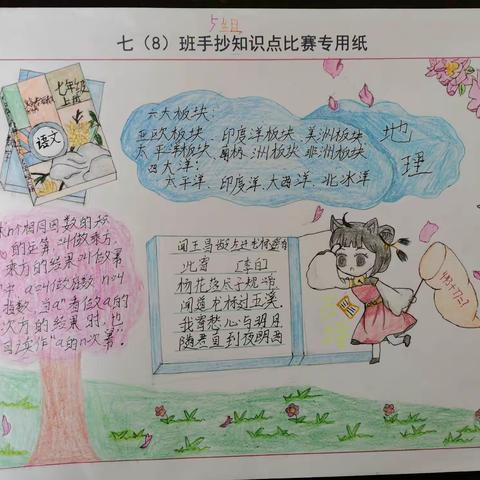 5组
七（8）班手抄知识点比赛专用纸
七年级
上册
语文
六大板块：
亚欧板块、印度洋板块、美洲板块、
太平洋板块、南极洲板块、非洲板块
四大洋：
太平洋、印度洋、大西洋、北冰洋
地理
求n个相同因数的积
的运算，叫做乘方，
乘方的结果叫做幂
中 a叫做底数 n叫
指数，当aⁿ看做a的
次方的结果时，也
可读作"a的n次幂。
闻王昌龄左迁龙标遥有
此寄 【李白】
杨花落尽子规啼
闻道龙标过五溪
我寄愁心与明月
随君直到夜郎西